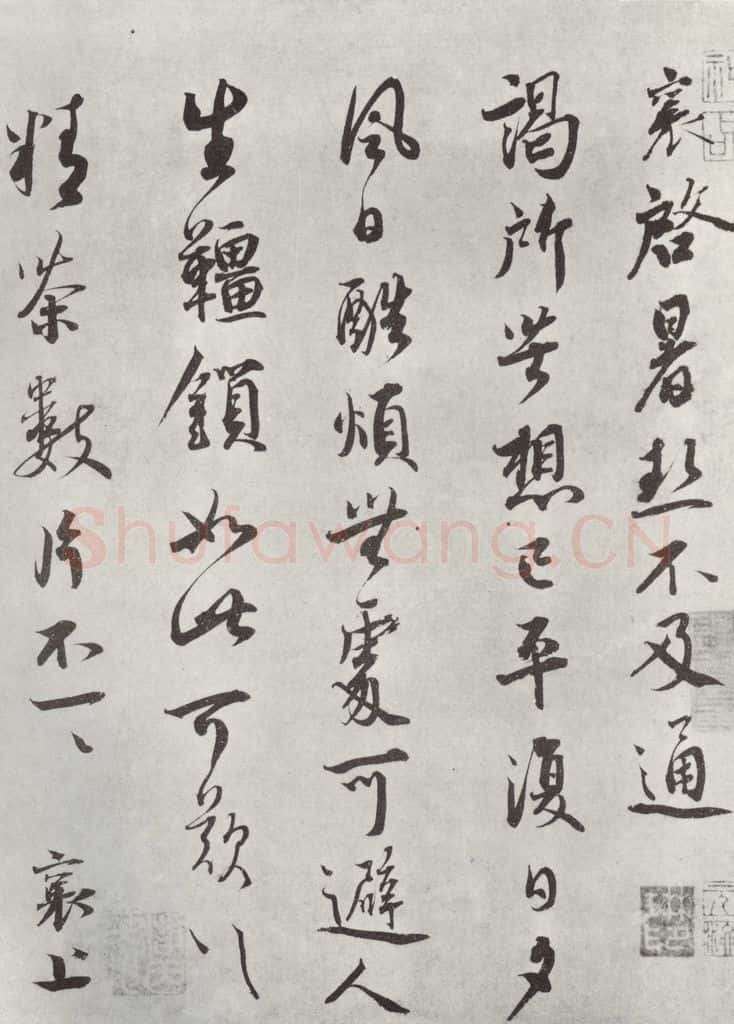 襄啓暑熱不及通
謁所苦想已平復日夕
風日酷煩無處可避人
生韁鎖如此可歎〻
精茶數片不一〻 襄上
Shufawang.CN